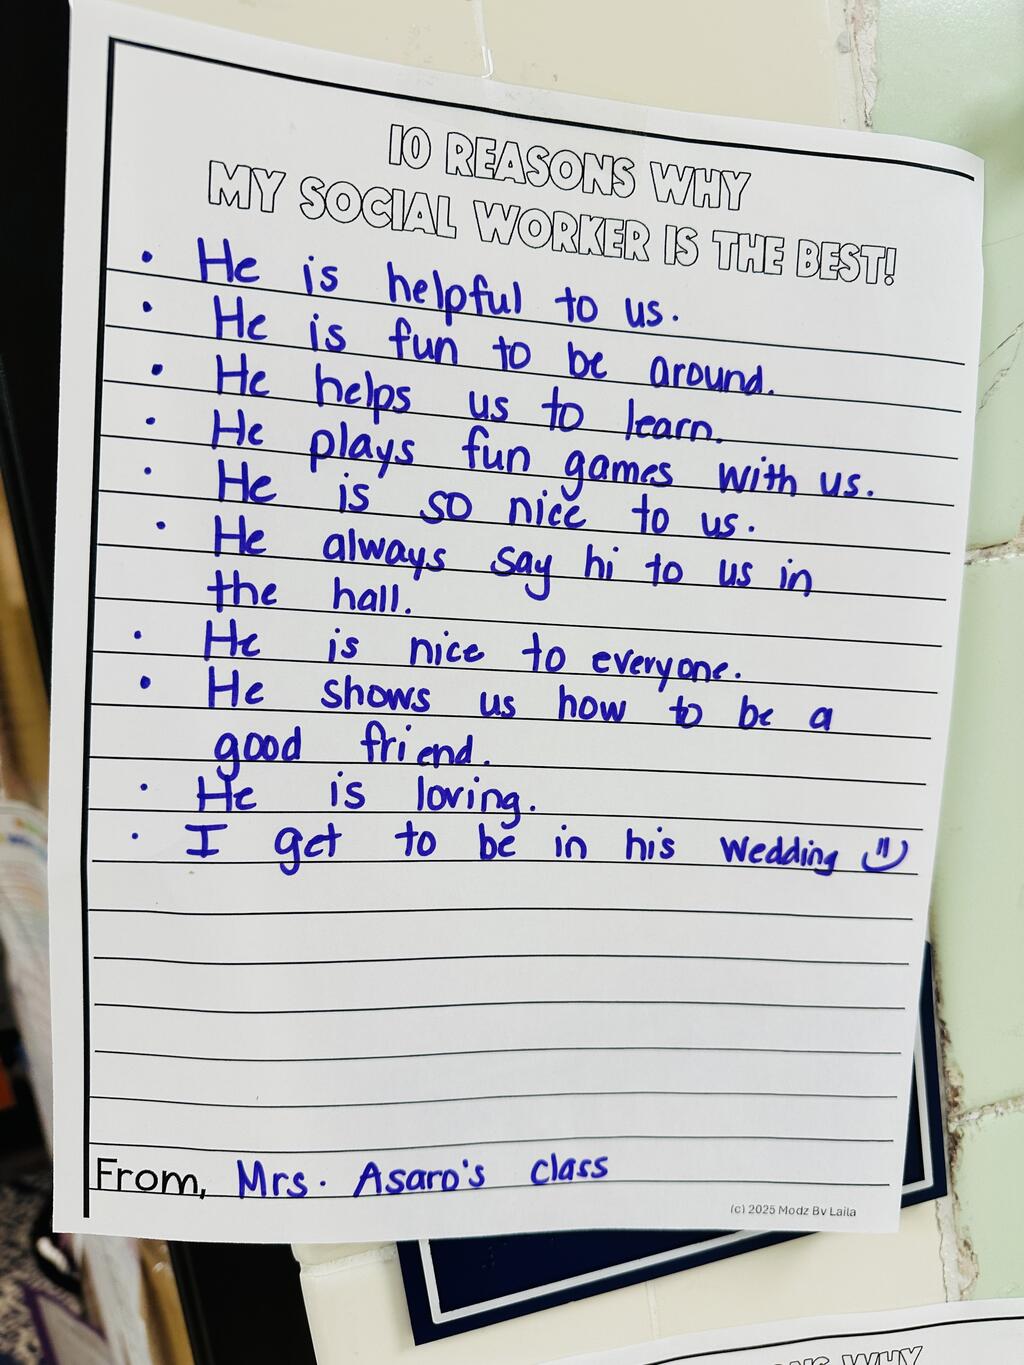 10 REASONS WHY
MY SOCIAL WORKER IS THE BEST!
• He is helpful to us.
• He is fun to be around.
• He helps us to learn.
• He plays fun games with us.
• He is so nice to us.
• He always say hi to us in
the hall.
• He is nice to everyone.
• He shows us how to be a
good friend.
• He is loving.
• I get to be in his wedding
From, Mrs. Asaro's class
(c) 2025 Modz By Laila
WHY